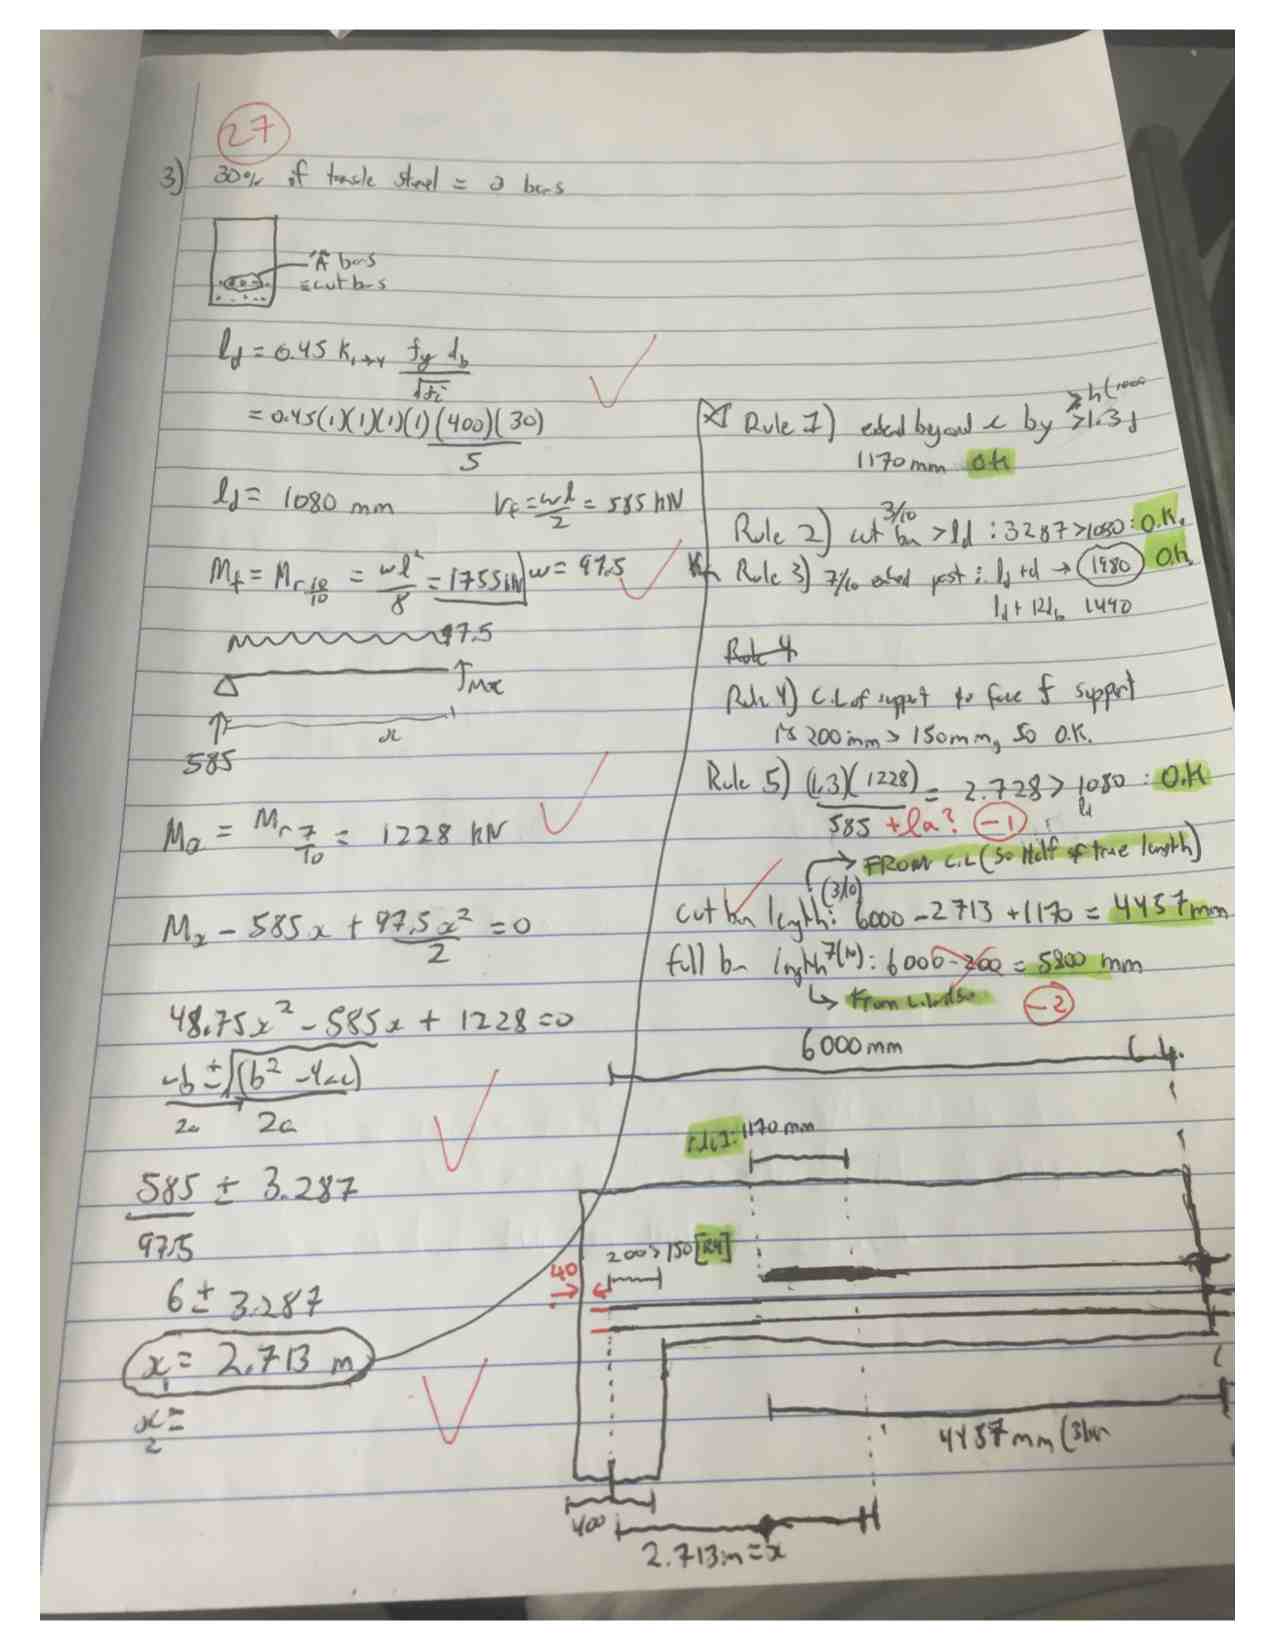 27
3) 30% of tensile steel = 3 bars
"A" bars
= cut bars
ld = 0.45 K1→4 fy db / √f'c
= 0.45(1)(1)(1)(1)(400)(30) / 5
ld = 1080 mm Vf = wl/2 = 585 kN
Mf = Mr 10/10 = wl²/8 = 1755 kN w = 97.5
97.5
Mx
x
585
Ma = Mr 7/10 = 1228 kN
Mx - 585x + 97.5x²/2 = 0
48.75x² - 585x + 1228 = 0
-b ± √(b² - 4ac)
2a 2a
585 ± 3.287
97.5
6 ± 3.287
x = 2.713 m
x =
2
Rule 1) extend beyond x by >1.3d
≥ h (1000
1170 mm OK
Rule 2) cut bar > ld : 3287 > 1080 : O.K.
3/10
Rule 3) 7/10 extend past : ld + d → 1980 O.K.
ld + 12db 1440
Rule 4
Rule 4) C.L of support to face of support
is 200 mm > 150 mm, so O.K.
Rule 5) (1.3)(1228) = 2.728 > 1080 : O.K
585 + la? -1 ld
→ FROM C.L (so Half of true length)
(3/10)
cut bar length: 6000 - 2713 + 1170 = 4457 mm
full bar length 7(10): 6000 - 200 = 5800 mm
↳ From C.L also -2
6000 mm C.L.
rule 1: 1170 mm
200 > 150 [R4]
40
4457 mm (3 bar
400
2.713 m = x